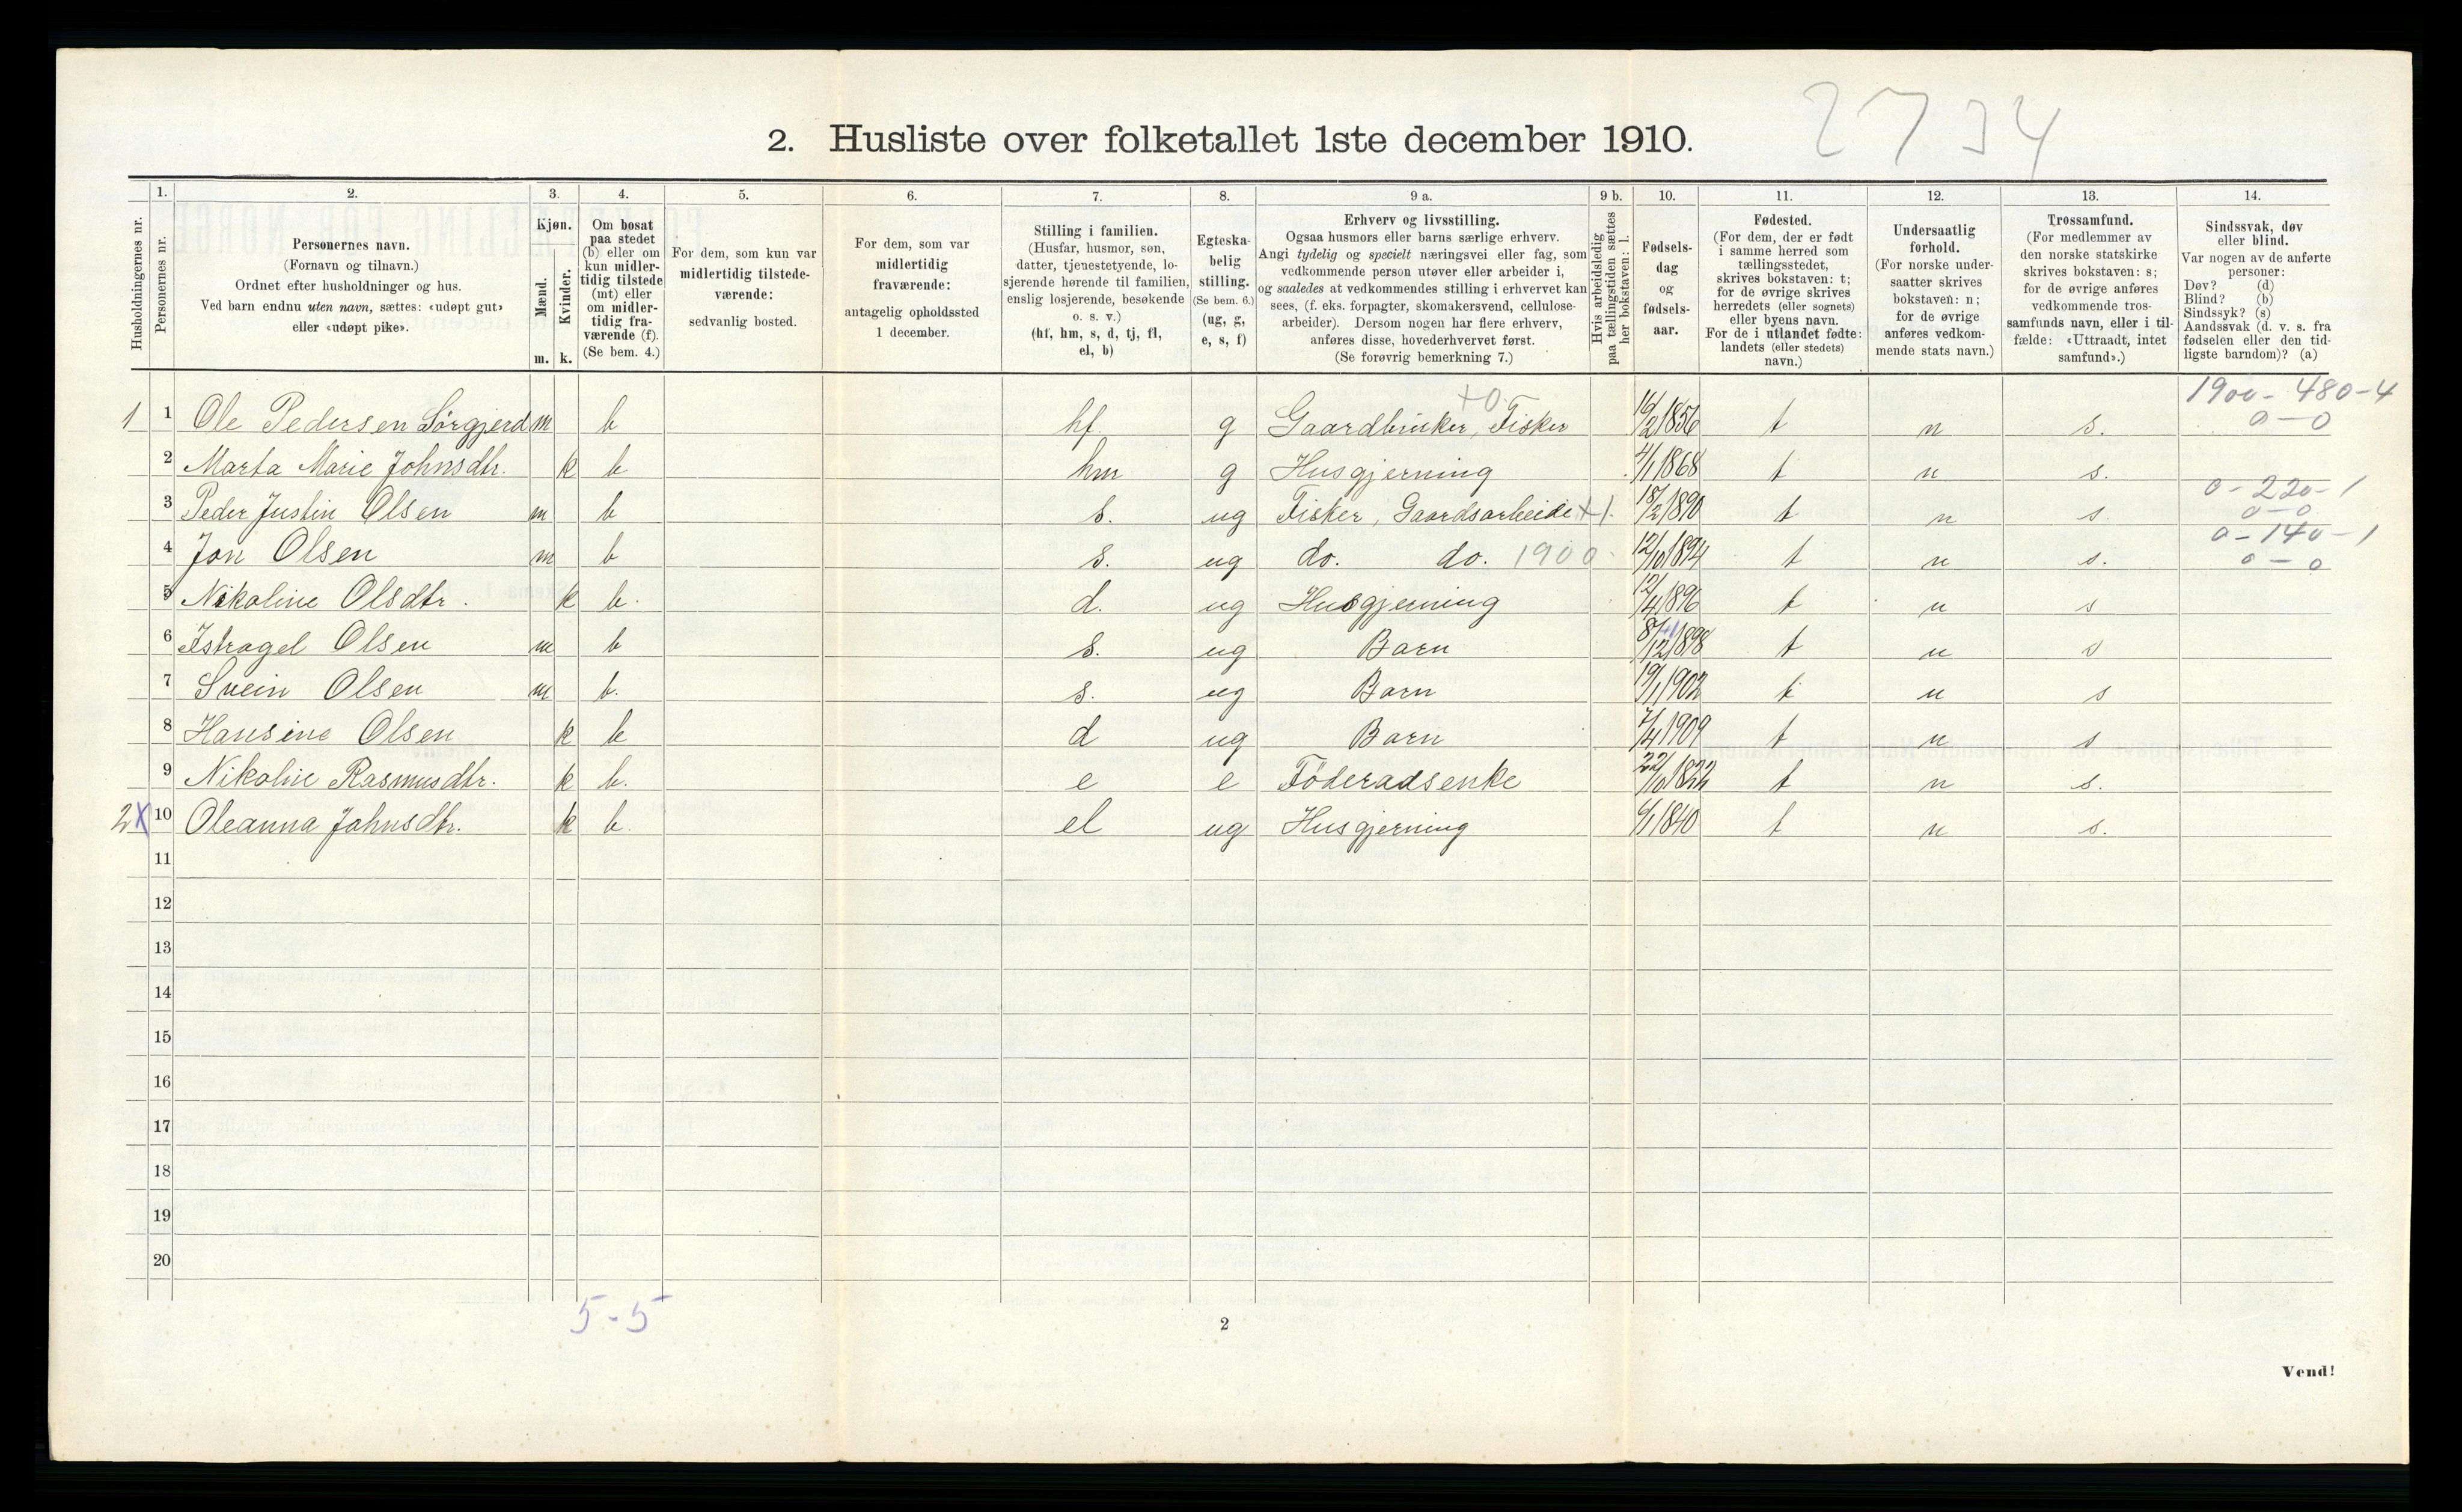 2734
2. Husliste over folketallet 1ste december 1910.
1. 2. 3. 4. 5. 6. 7. 8. 9 a. 9 b. 10. 11. 12. 13. 14.
Husholdningernes nr.
Personernes nr.
Personernes navn.
(Fornavn og tilnavn.)
Ordnet efter husholdninger og hus.
Ved barn endnu uten navn, sættes: «udøpt gut»
eller «udøpt pike».
Kjøn.
Mænd.
Kvinder.
m. k.
Om bosat
paa stedet
(b) eller om
kun midler-
tidig tilstede
(mt) eller
om midler-
tidig fra-
værende (f).
(Se bem. 4.)
For dem, som kun var
midlertidig tilstede-
værende:
sedvanlig bosted.
For dem, som var
midlertidig
fraværende:
antagelig opholdssted
1 december.
Stilling i familien.
(Husfar, husmor, søn,
datter, tjenestetyende, lo-
sjerende hørende til familien,
enslig losjerende, besøkende
o. s. v.)
(hf, hm, s, d, tj, fl,
el, b)
Egteska-
belig
stilling.
(Se bem. 6.)
(ug, g,
e, s, f)
Erhverv og livsstilling.
Ogsaa husmors eller barns særlige erhverv.
Angi tydelig og specielt næringsvei eller fag, som
vedkommende person utøver eller arbeider i,
og saaledes at vedkommendes stilling i erhvervet kan
sees, (f. eks. forpagter, skomakersvend, cellulose-
arbeider). Dersom nogen har flere erhverv,
anføres disse, hovederhvervet først.
(Se forøvrig bemerkning 7.)
Hvis arbeidsledig
paa tællingstiden sættes
her bokstaven: l.
Fødsels-
dag
og
fødsels-
aar.
Fødested.
(For dem, der er født
i samme herred som
tællingsstedet,
skrives bokstaven: t;
for de øvrige skrives
herredets (eller sognets)
eller byens navn.
For de i utlandet fødte:
landets (eller stedets)
navn.)
Undersaatlig
forhold.
(For norske under-
saatter skrives
bokstaven: n;
for de øvrige
anføres vedkom-
mende stats navn.)
Trossamfund.
(For medlemmer av
den norske statskirke
skrives bokstaven: s;
for de øvrige anføres
vedkommende tros-
samfunds navn, eller i til-
fælde: «Uttraadt, intet
samfund».)
Sindssvak, døv
eller blind.
Var nogen av de anførte
personer:
Døv? (d)
Blind? (b)
Sindssyk? (s)
Aandssvak (d. v. s. fra
fødselen eller den tid-
ligste barndom)? (a)
+0. 1900-480-4
1 1 Ole Pedersen Sørgjerd m b hf. g Gaardbruker, Fisker 16/2 1856 t n s. 0-0
2 Marta Marie Johnsdtr. k b hm g Husgjerning 4/1 1868 t n s.
0-220-1
3 Peder Justin Olsen m b s. ug Fisker, Gaardsarbeide +1. 18/2 1890 t n s. 0-0
0-140-1
4 Jon Olsen m b s. ug do. do. 1900 12/10 1894 t n s. 0-0
5 Nikoline Olsdtr. k b. d. ug Husgjerning 12/4 1896 t n s
6 Istragel Olsen m b s. ug Barn 8/12 1898 t n s
7 Svein Olsen m b. s. ug Barn 19/1 1902 t n s
8 Hansine Olsen k b d ug Barn 7/4 1909 t n s
9 Nikoline Rasmusdtr. k b. e e Føderaadsenke 22/10 1822 t n s.
2 X 10 Oleanna Johnsdtr. k b. el ug Husgjerning 1840 t n s.
11
12
13
14
15
16
17
18
19
20
5-5
2
Vend!